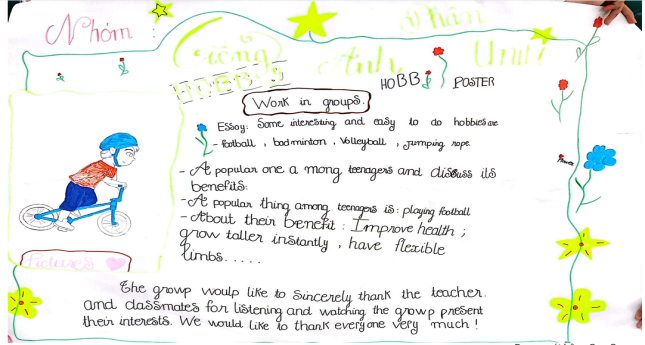 Nhóm :
Tiếng Anh Unit 1
HOBBY
HOBBY POSTER
Work in groups.
Essoy: Some interesting and easy to do hobbies are
- football , badminton , Volleyball , jumping rope
- A popular one a mong teenagers and discuss its
benefits:
- A popular thing among teenagers is : playing football
- About their benefit : Improve health ;
grow taller instantly , have flexible
limbs.....
Pictures
The group woulp like to sincerely thank the teacher.
and classmates for listening and watching the group present
their interests. We would like to thank everyone very much !